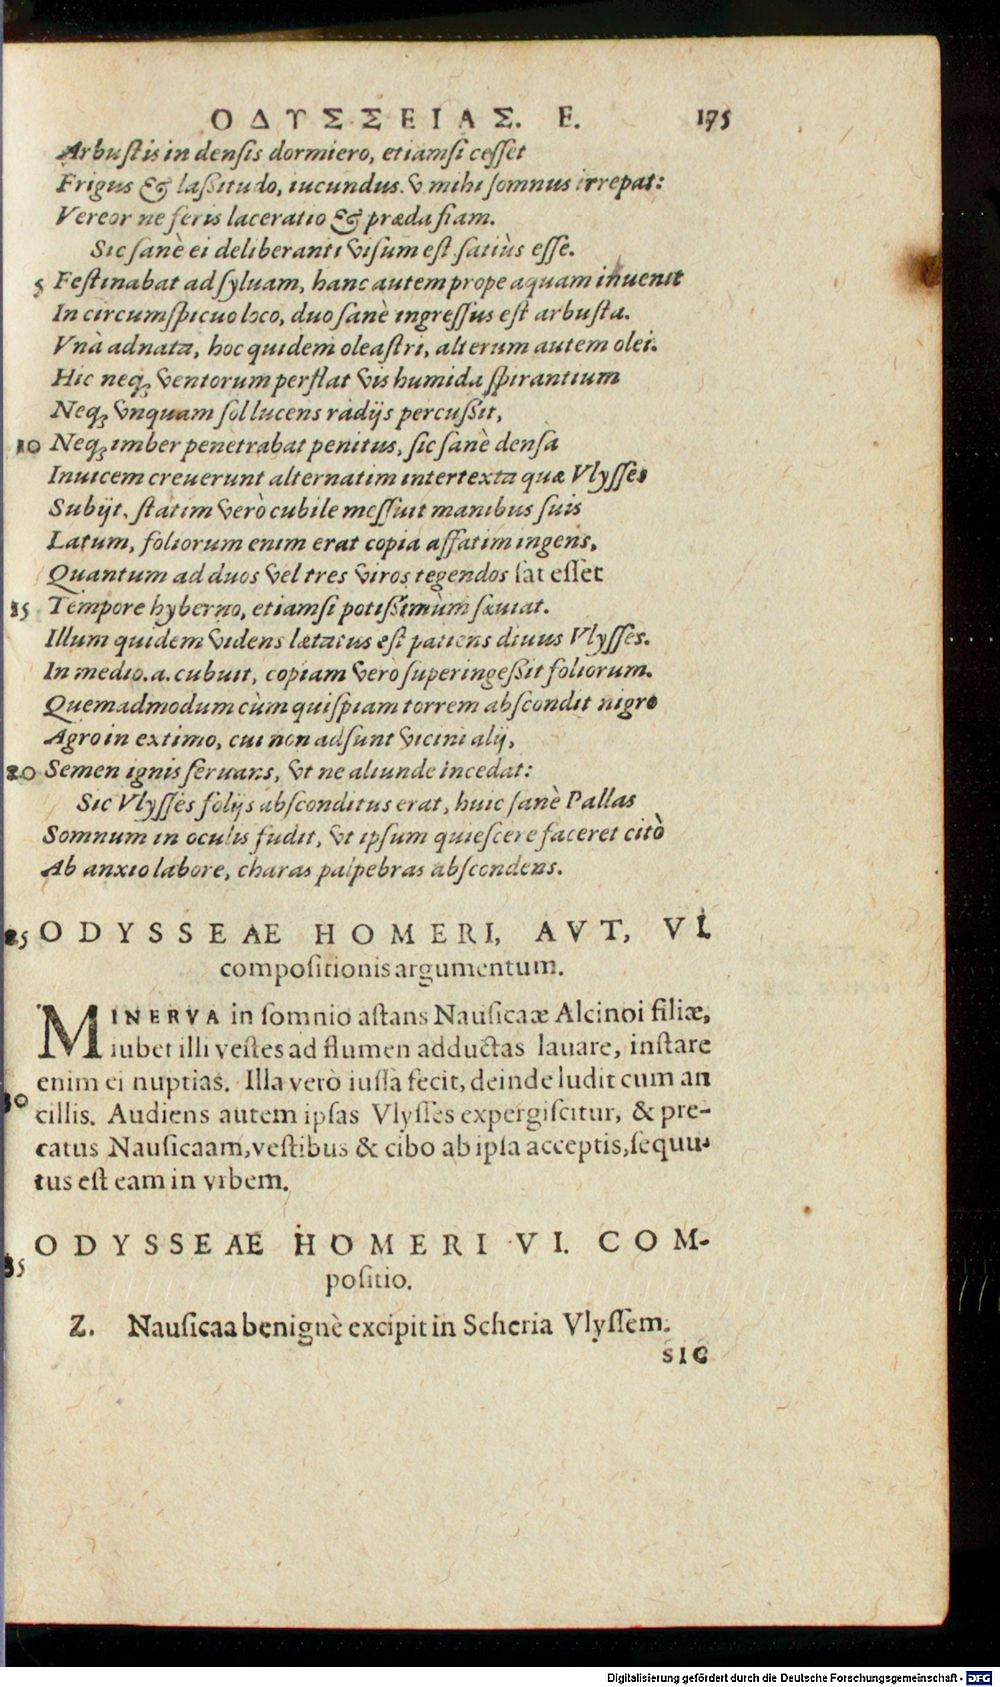 ΟΔΥΣΣΕΙΑΣ. E. 175
Arbustis in densis dormiero, etiamsi cesset
Frigus & lassitudo, iucundus. v. mihi somnus irrepat:
Vereor ne feris laceratio & præda fiam.
Sic sanè ei deliberanti visum est satiùs esse.
5 Festinabat ad syluam, hanc autem prope aquam inuenit
In circumspicuo loco, duo sanè ingressus est arbusta.
Vnà adnata, hoc quidem oleastri, alterum autem olei.
Hic neq; ventorum perflat vis humida spirantium
Neq; vnquam sol lucens radijs percussit,
10 Neq; imber penetrabat penitus, sic sanè densa
Inuicem creuerunt alternatim intertexta quæ Vlysses
Subijt. statim verò cubile messuit manibus suis
Latum, foliorum enim erat copia affatim ingens,
Quantum ad duos vel tres viros tegendos sat esset
15 Tempore hyberno, etiamsi potissimùm sæuiat.
Illum quidem videns lætatus est patiens diuus Vlysses.
In medio. a. cubuit, copiam verò superingessit foliorum.
Quemadmodum cùm quispiam torrem abscondit nigro
Agro in extimo, cui non adsunt vicini alij,
20 Semen ignis seruans, vt ne aliunde incedat:
Sic Vlysses folijs absconditus erat, huic sanè Pallas
Somnum in oculis fudit, vt ipsum quiescere faceret citò
Ab anxio labore, charas palpebras abscondens.
25 ODYSSEAE HOMERI, AVT, VI.
compositionis argumentum.
MINERVA in somnio astans Nausicaæ Alcinoi filiæ,
iubet illi vestes ad flumen adductas lauare, instare
enim ei nuptias. Illa verò iussa fecit, deinde ludit cum an
30 cillis. Audiens autem ipsas Vlysses expergiscitur, & pre-
catus Nausicaam, vestibus & cibo ab ipsa acceptis, sequu-
tus est eam in vrbem.
ODYSSEAE HOMERI VI. COM-
35 positio.
Z. Nausicaa benignè excipit in Scheria Vlyssem.
SIC
Digitalisierung gefördert durch die Deutsche Forschungsgemeinschaft - DFG